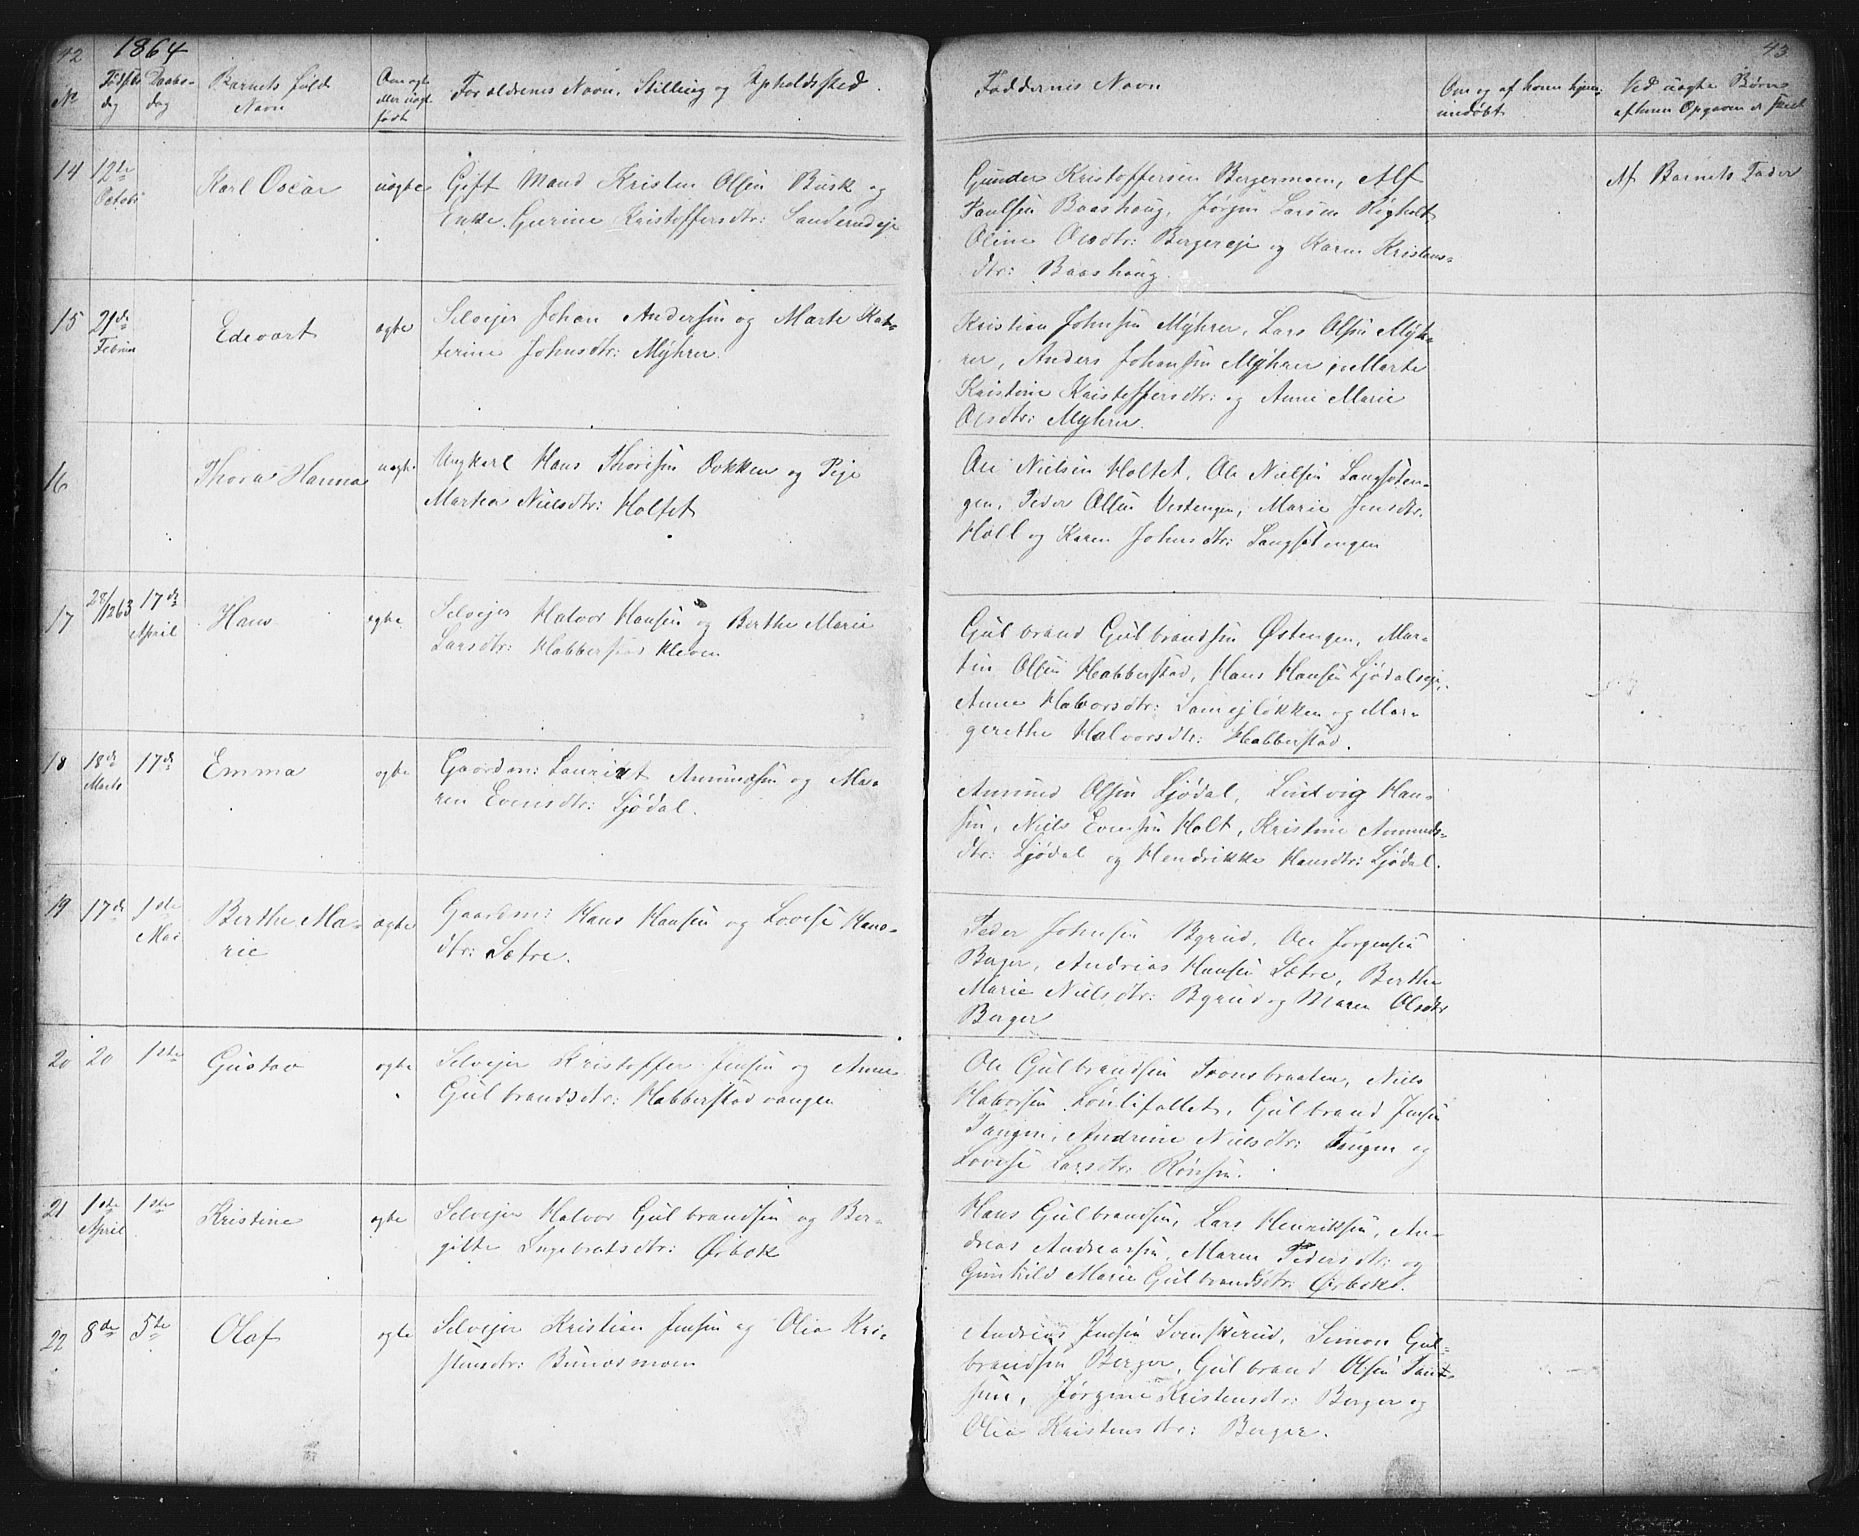 42
1864
43
No
Fødsels dag
Daabs-dag
Barnets fulde Navn
Om ægte eller uægte født
Forældrenes Navn, Stilling og Opholdssted.
Faddernes Navn
Om og af hvem hjemmedøbt
Ved uægte Børn af hvem Opgaven er skeet
14
12te Octob:
Karl Oscar
uægte
Gift Mand Kristen Olsen Busk og
Enke Gurine Kristoffersdtr: Sanderudeje
Gunder Kristoffersen Bergermoen, Alf
Paulsen Baashaug, Jørgen Larsen
Oline Olsdtr: Bergereje og Karen Kristens-
dtr: Baashaug.
Af Barnets Fader
15
21de Februar
Edevart
ægte
Selvejer Johan Andersen og Marte Kat-
terine Johnsdtr: Myhrer.
Kristian Johnsen Myhrer, Lars Olsen Myh-
rer, Anders Johansen Myhrer, Marte
Kristine Kristoffersdtr: og Anne Marie
Olsdtr: Myhrer.
16
Thora Hanna
uægte
Ungkarl Hans Thorsen Dokken og Pige
Marthea Nielsdtr: Holtet
Ole Nielsen Holtet, Ole Nielsen Langsten-
gen, Peder Olsen Vestengen, Marie Jensdtr:
Holl og Karen Johnsdtr: Langstengen
17
28/12 63
17de April
Hans
ægte
Selvejer Halvor Hansen og Berthe Marie
Larsdtr: Habberstad kleven
Gulbrand Gulbrandsen Østengen, Mar-
tin Olsen Habberstad, Hans Hansen Ljødalseje,
Anne Halvorsdtr: og Mar-
grethe Halvorsdtr: Habberstad.
18
18de Marts
17de
Emma
ægte
Gaardm: Lauritz Amundsen og Ma-
ren Evensdtr: Ljødal.
Amund Olsen Ljødal, Ludvig Han-
sen, Niels Evensen Holt, Kristine Amunds-
dtr: Ljødal og Hendrikke Hansdtr: Ljødal.
19
17de
1ste Mai
Berthe Ma-
rie
ægte
Gaardm: Hans Hansen og Lovise Hans-
dtr: Sætre.
Peder Johnsen Byrud, Ole Jørgensen
Berger, Andreas Hansen Sætre, Berthe
Marie Nielsdtr: Byrud og Maren Olsdtr
Berger
20
20
1ste
Gustav
ægte
Selvejer Kristoffer Jensen og Anne
Gulbrandsdtr: Habberstad vangen
Ole Gulbrandsen Tronsbraaten, Niels
Halvorsen Gulbrand Jensen
Tangen, Andrine Nielsdtr: Tangen og
Lovise Larsdtr: Rønsen.
21
1ste April
1ste
Kristine
ægte
Selvejer Halvor Gulbrandsen og Ber-
gitte Ingebratsdtr: Ørbæk
Hans Gulbrandsen, Lars Henriksen, An-
dreas Andreassen, Maren Pedersdtr: og
Gunhild Marie Gulbrandsdtr: Ørbæk.
22
8de
5te
Olaf
ægte
Selvejer Kristian Jensen og Olia Kri-
stensdtr: Bundesmoen
Andreas Jensen Svenskerud, Simon Gul-
brandsen Berger, Gulbrand Olsen
Jørgine Kristensdtr: Berger og
Olia Kristensdtr: Berger.